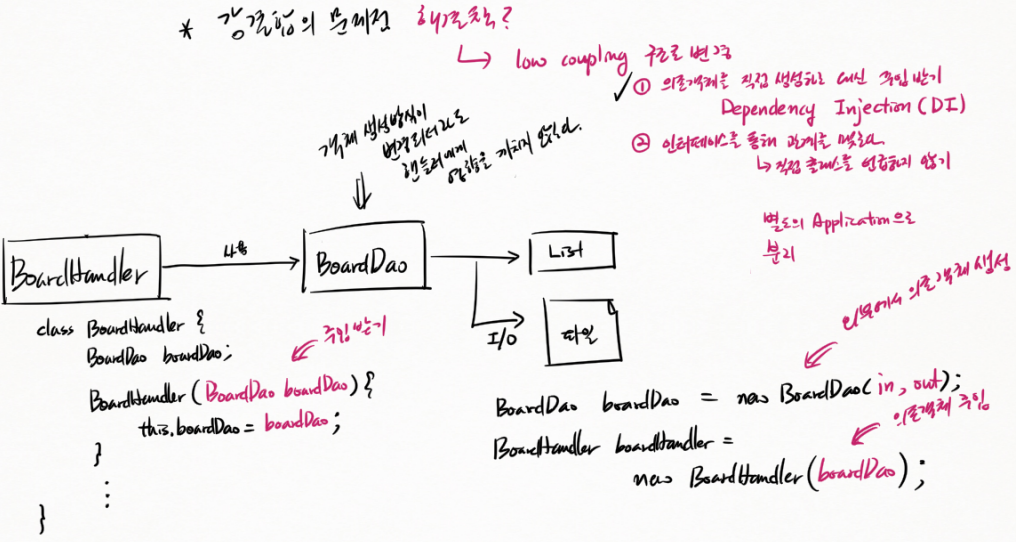 * 강결합의 문제점 해결책?
↳ low coupling 구조로 변경
✓ ① 의존객체를 직접 생성하는 대신 주입 받기
Dependency Injection (DI)
② 인터페이스를 통해 관계를 맺는다.
↳ 직접 클래스를 언급하지 않기
객체 생성방식이
변경되더라도
핸들러에게
영향을 끼치지 않는다.
별도의 Application으로
분리
BoardHandler
사용
BoardDao
List
I/O
파일
class BoardHandler {
BoardDao boardDao;
주입 받기
BoardHandler (BoardDao boardDao) {
this.boardDao = boardDao;
}
⋮
}
외부에서 의존객체 생성
BoardDao boardDao = new BoardDao(in, out);
의존객체 주입
BoardHandler boardHandler =
new BoardHandler(boardDao);